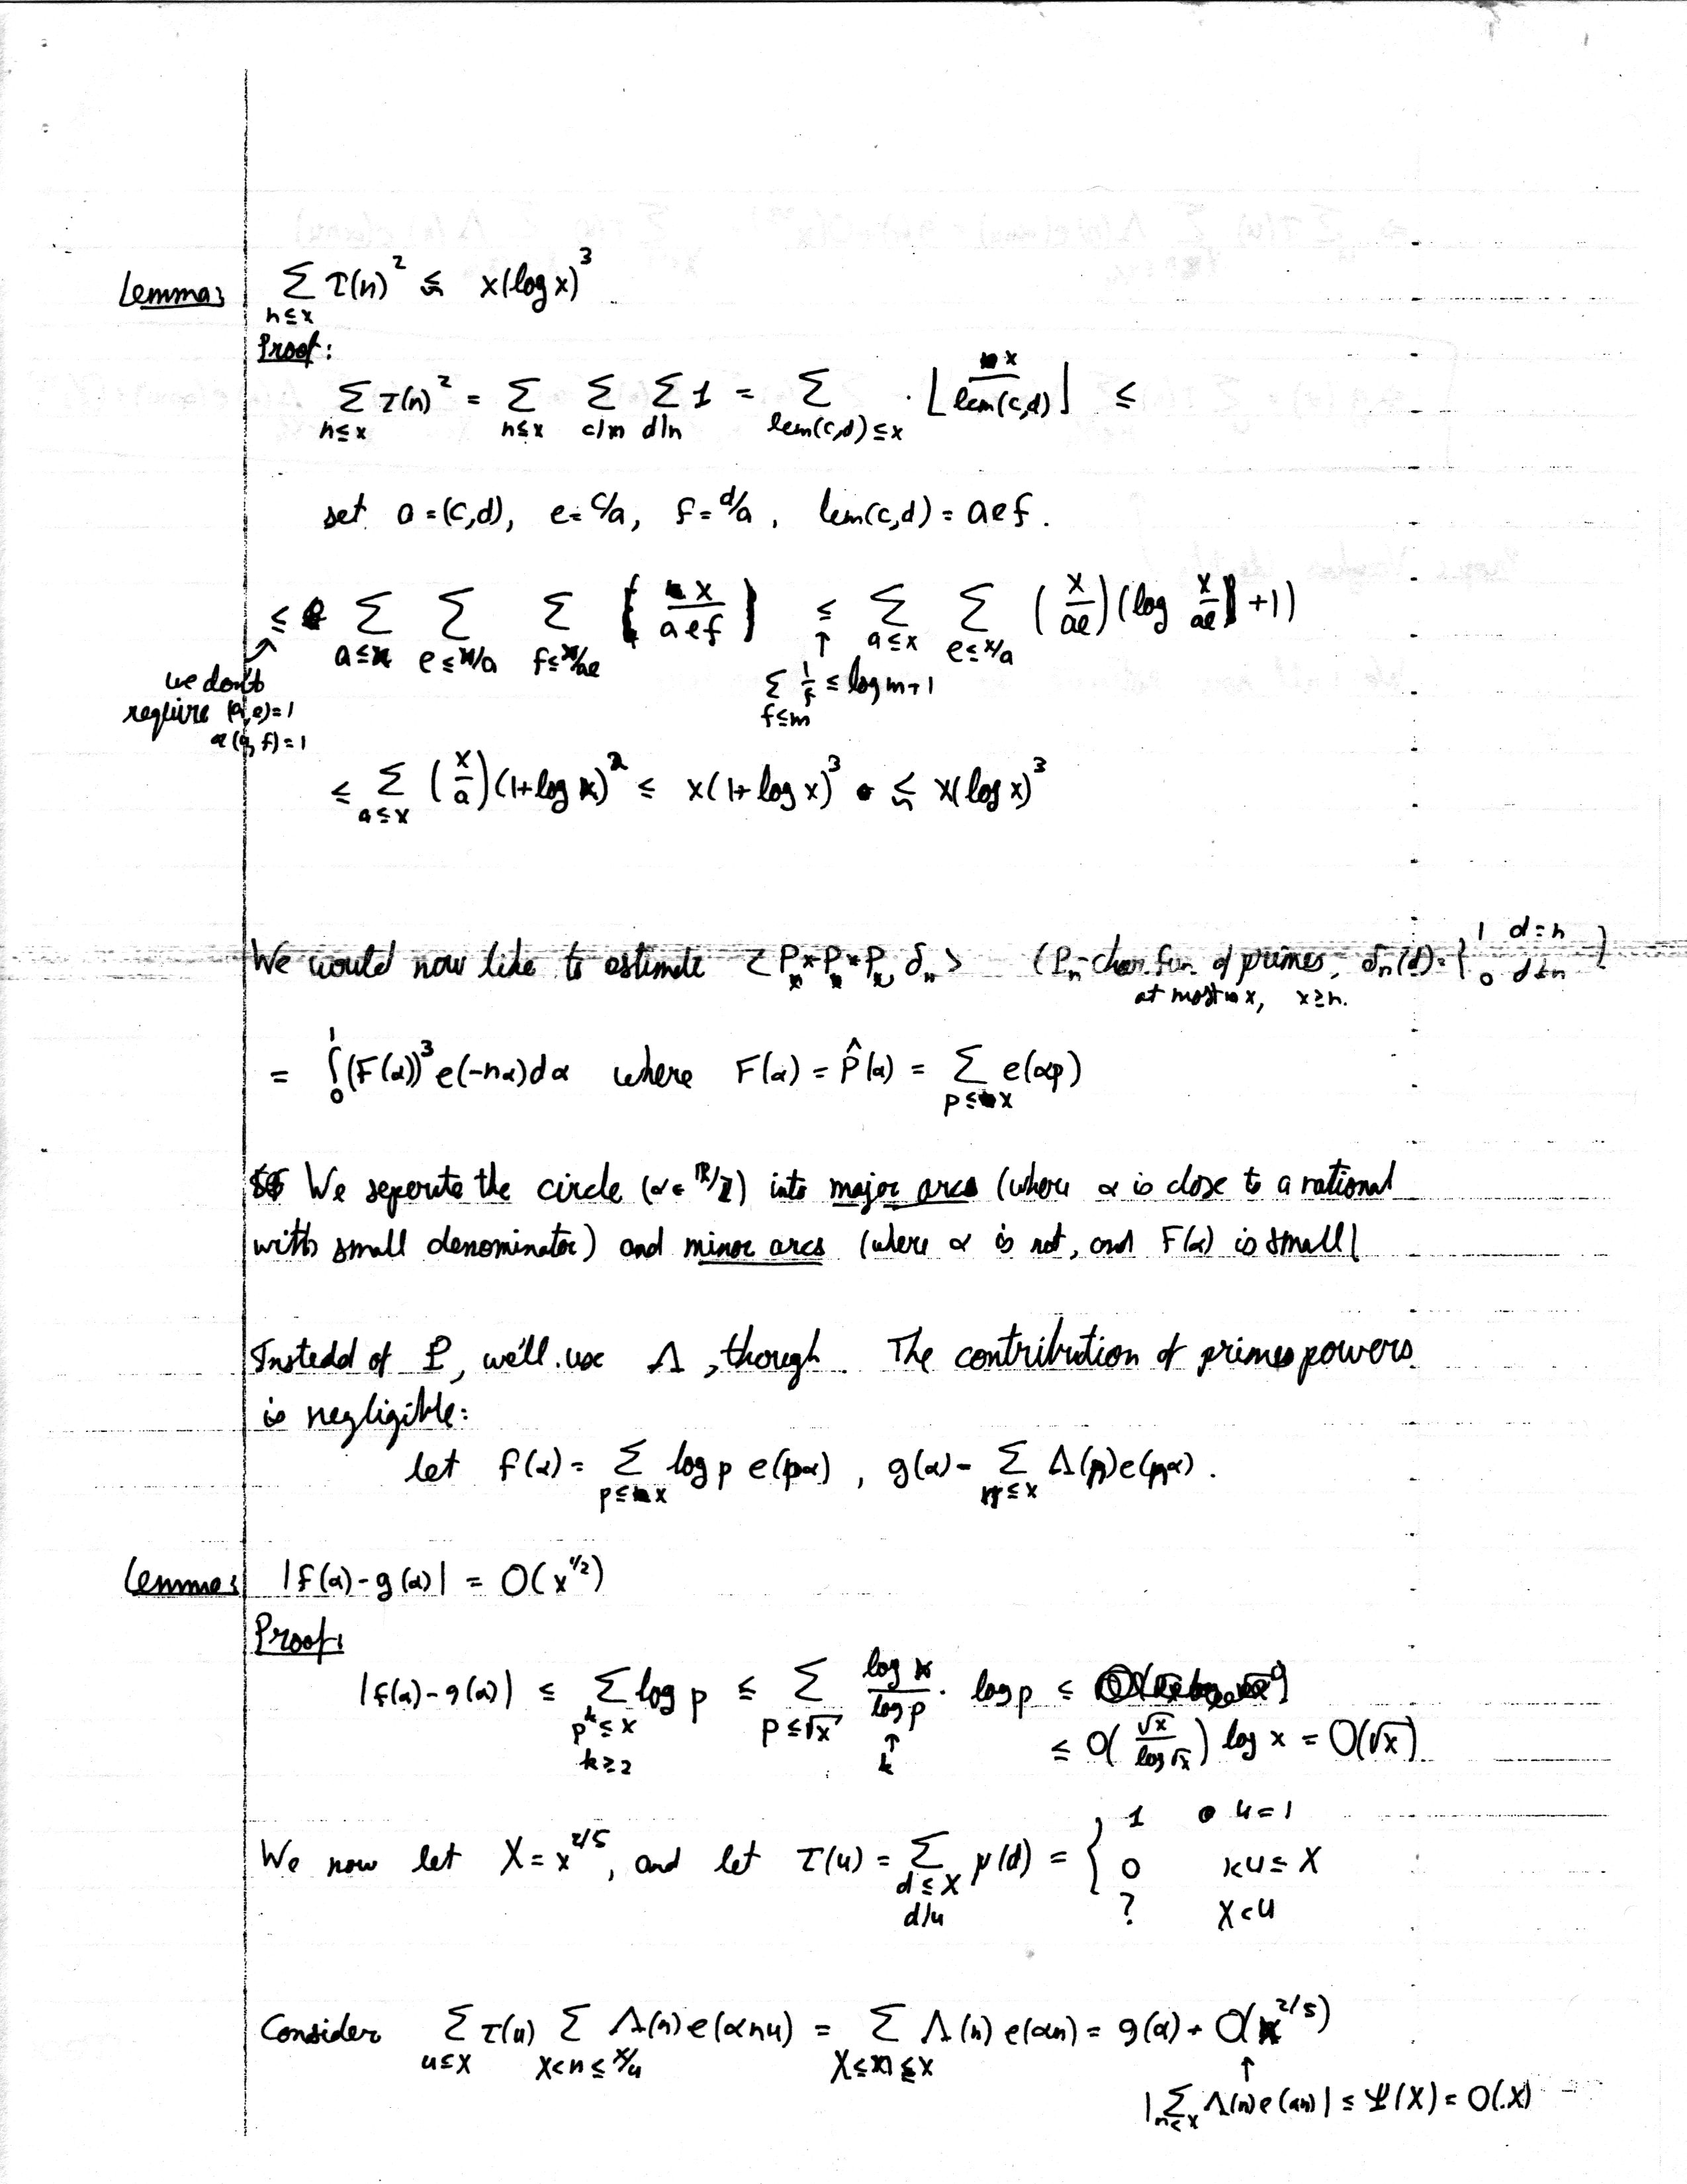 Lemma: ∑_{n≤x} τ(n)² ≲ x(log x)³
Proof:
∑_{n≤x} τ(n)² = ∑_{n≤x} ∑_{c|n} ∑_{d|n} 1 = ∑_{lcm(c,d)≤x} · ⌊x/lcm(c,d)⌋ ≤
set a=(c,d), e=c/a, f=d/a, lcm(c,d)=aef.
≤ ∑_{a≤x} ∑_{e≤x/a} ∑_{f≤x/ae} {x/aef} ≤ ∑_{a≤x} ∑_{e≤x/a} (x/ae)(log x/ae +1)
↑
∑_{f≤m} 1/f ≤ log m+1
we don't
require (a,e)=1
or (a,f)=1
≤ ∑_{a≤x} (x/a)(1+log x)² ≤ x(1+log x)³ ≲ x(log x)³
We would now like to estimate <P_x*P_x*P_x, δ_n> (P_n-char. fun. of primes, δ_n(d)={1 d=n 0 d≠n}
at most x, x≥n.
= ∫₀¹(F(α))³e(-nα)dα where F(α) = P̂(α) = ∑_{p≤x} e(αp)
We seperate the circle (α∈ℝ/ℤ) into major arcs (where α is close to a rational
with small denominator) and minor arcs (where α is not, and F(α) is small)
Instead of P, we'll use Λ, though. The contribution of primes powers
is negligible:
let f(α)= ∑_{p≤x} log p e(pα), g(α)= ∑_{n≤x} Λ(n)e(nα).
Lemma: |f(α)-g(α)| = O(x^{1/2})
Proof:
|f(α)-g(α)| ≤ ∑_{p^k≤x, k≥2} log p ≤ ∑_{p≤√x} (log x/log p) · log p ≤
↑
k
≤ O(√x/log√x) log x = O(√x)
We now let X=x^{2/5}, and let τ(u) = ∑_{d≤X, d|u} μ(d) = { 1 u=1
0 1<u≤X
? X<u
Consider ∑_{u≤X} τ(u) ∑_{X<n≤x/u} Λ(n)e(αnu) = ∑_{X≤n≤x} Λ(n)e(αn) = g(α)+O(x^{2/5})
↑
|∑_{n≤X} Λ(n)e(αn)| ≤ Ψ(X) = O(X)